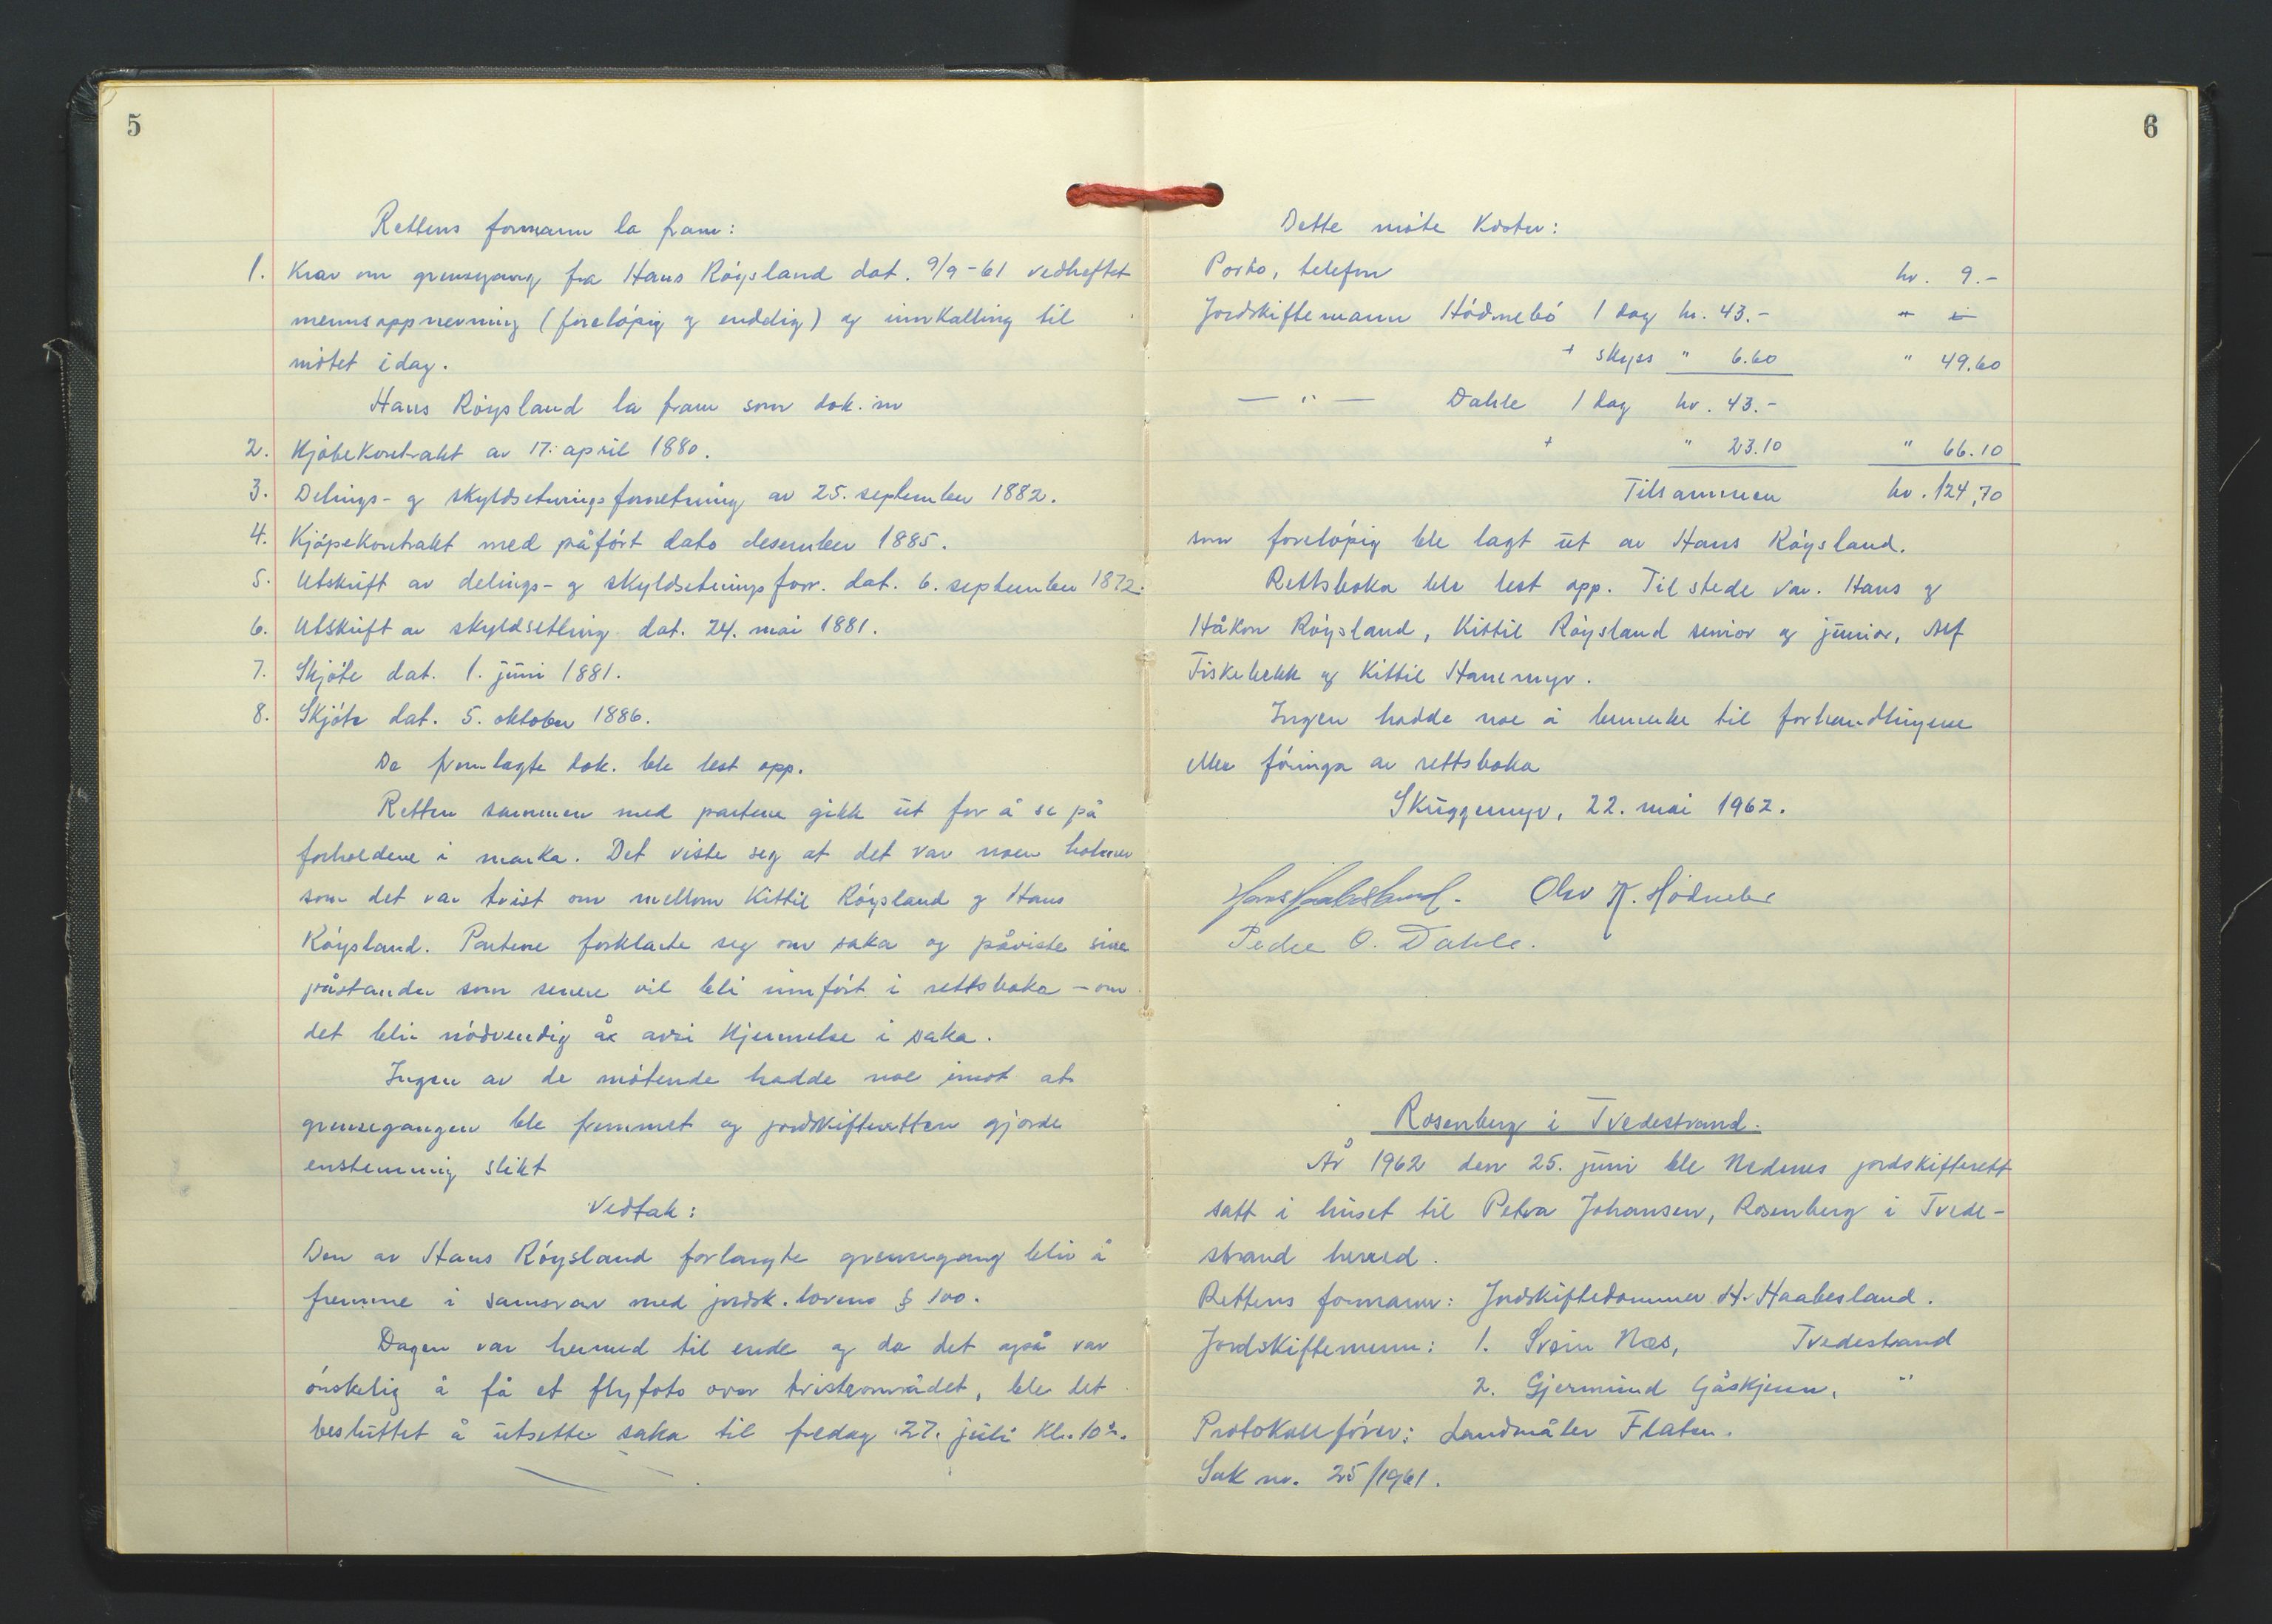 5
Rettens formann la fram:
1. Krav om grensegang fra Hans Röysland dat. 9/9-61 vedheftet
mennsoppnevning (foreløpig og endelig) og innkalling til
møtet i dag.
Hans Röysland la fram som dok. nr
2. Kjöbekontrakt av 17. april 1880.
3. Delings- og skyldsetningsforretning av 25. september 1882.
4. Kjöpekontrakt med påfört dato desember 1885.
5. Utskrift av delings- og skyldsetningsforr. dat. 6. september 1872.
6. Utskrift av skyldsetting dat. 24. mai 1881.
7. Skjöte dat. 1. juni 1881.
8. Skjöte dat. 5. oktober 1886.
De framlagte dok. ble lest opp.
Retten sammen med partene gikk ut for å se på
forholdene i marka. Det viste seg at det var noen
som det var tvist om mellom Kittil Röysland og Hans
Röysland. Partene forklarte seg om saka og påviste sine
påstander som senere vil bli innfört i rettsboka – om
det blir nödvendig å avsi kjennelse i saka.
Ingen av de mötende hadde noe imot at
grensegangen ble fremmet og jordskifteretten gjorde
enstemmig slikt
Vedtak:
Den av Hans Röysland forlangte grensegang blir å
fremme i samsvar med jordsk.lovens § 100.
Dagen var hermed til ende og da det også var
önskelig å få et flyfoto over tvisteområdet, ble det
besluttet å utsette saka til fredag 27. juli kl. 10.
6
Dette möte koster:
Porto, telefon kr. 9.-
Jordskiftemann Hödnebö 1 dag kr. 43.-
+ skyss " 6.60 " 49.60
— " — Dahle 1 dag kr. 43.-
+ " 23.10 " 66.10
Tilsammen kr. 124,70
som foreløpig ble lagt ut av Hans Röysland.
Rettsboka ble lest opp. Til stede var. Hans og
Håkon Röysland, Kittil Röysland senior og junior, Alf
Fiskebekk og Kittil Hanemyr.
Ingen hadde noe å bemerke til forhandlingene
eller föringa av rettsboka
Skuggemyr, 22. mai 1962.
Hans Haabesland. Olav K. Hödnebö
Peder O. Dahle.
Rosenberg i Tvedestrand.
År 1962 den 25. juni ble Nedenes jordskifterett
satt i huset til Petra Johansen, Rosenberg i Tvede-
strand herred.
Rettens formann: Jordskiftedommer H. Haabesland.
Jordskiftemenn: 1. Svein Næs, Tvedestrand
2. Gjermund Gåskjenn, "
Protokollförer: Landmåler Flaten.
Sak nr. 25/1961.